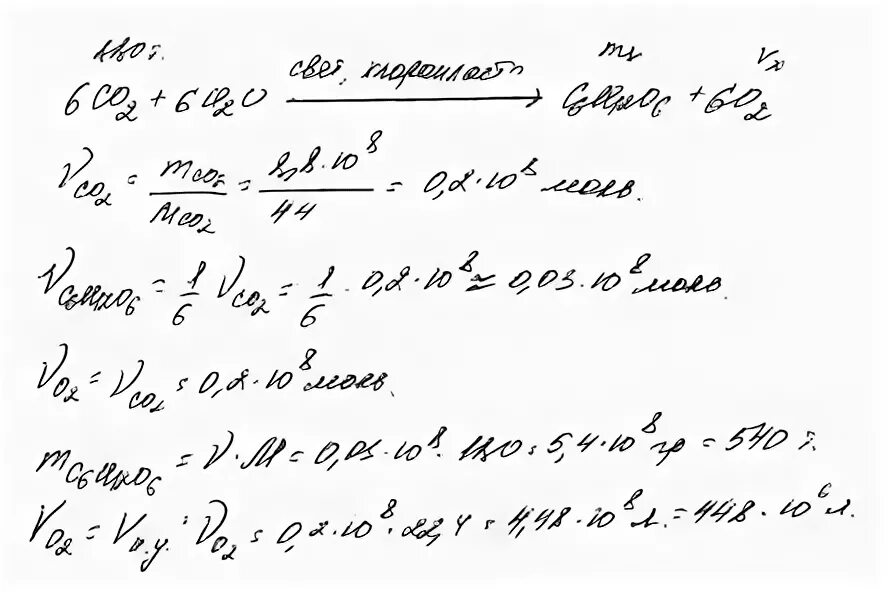 880 т. mx Vx
6CO2 + 6H2O свет, хлоропласт → C6H12O6 + 6O2
νCO2 = mCO2 / MCO2 = 8,8·10^8 / 44 = 0,2·10^8 моль.
νC6H12O6 = 1/6 νCO2 = 1/6 · 0,2·10^8 ≈ 0,03·10^8 моль.
νO2 = νCO2 = 0,2·10^8 моль.
mC6H12O6 = ν·M = 0,03·10^8 · 180 = 5,4·10^8 гр = 540 т.
VO2 = Vн.у. · νO2 = 0,2·10^8 · 22,4 = 4,48·10^8 л. = 448·10^6 л.